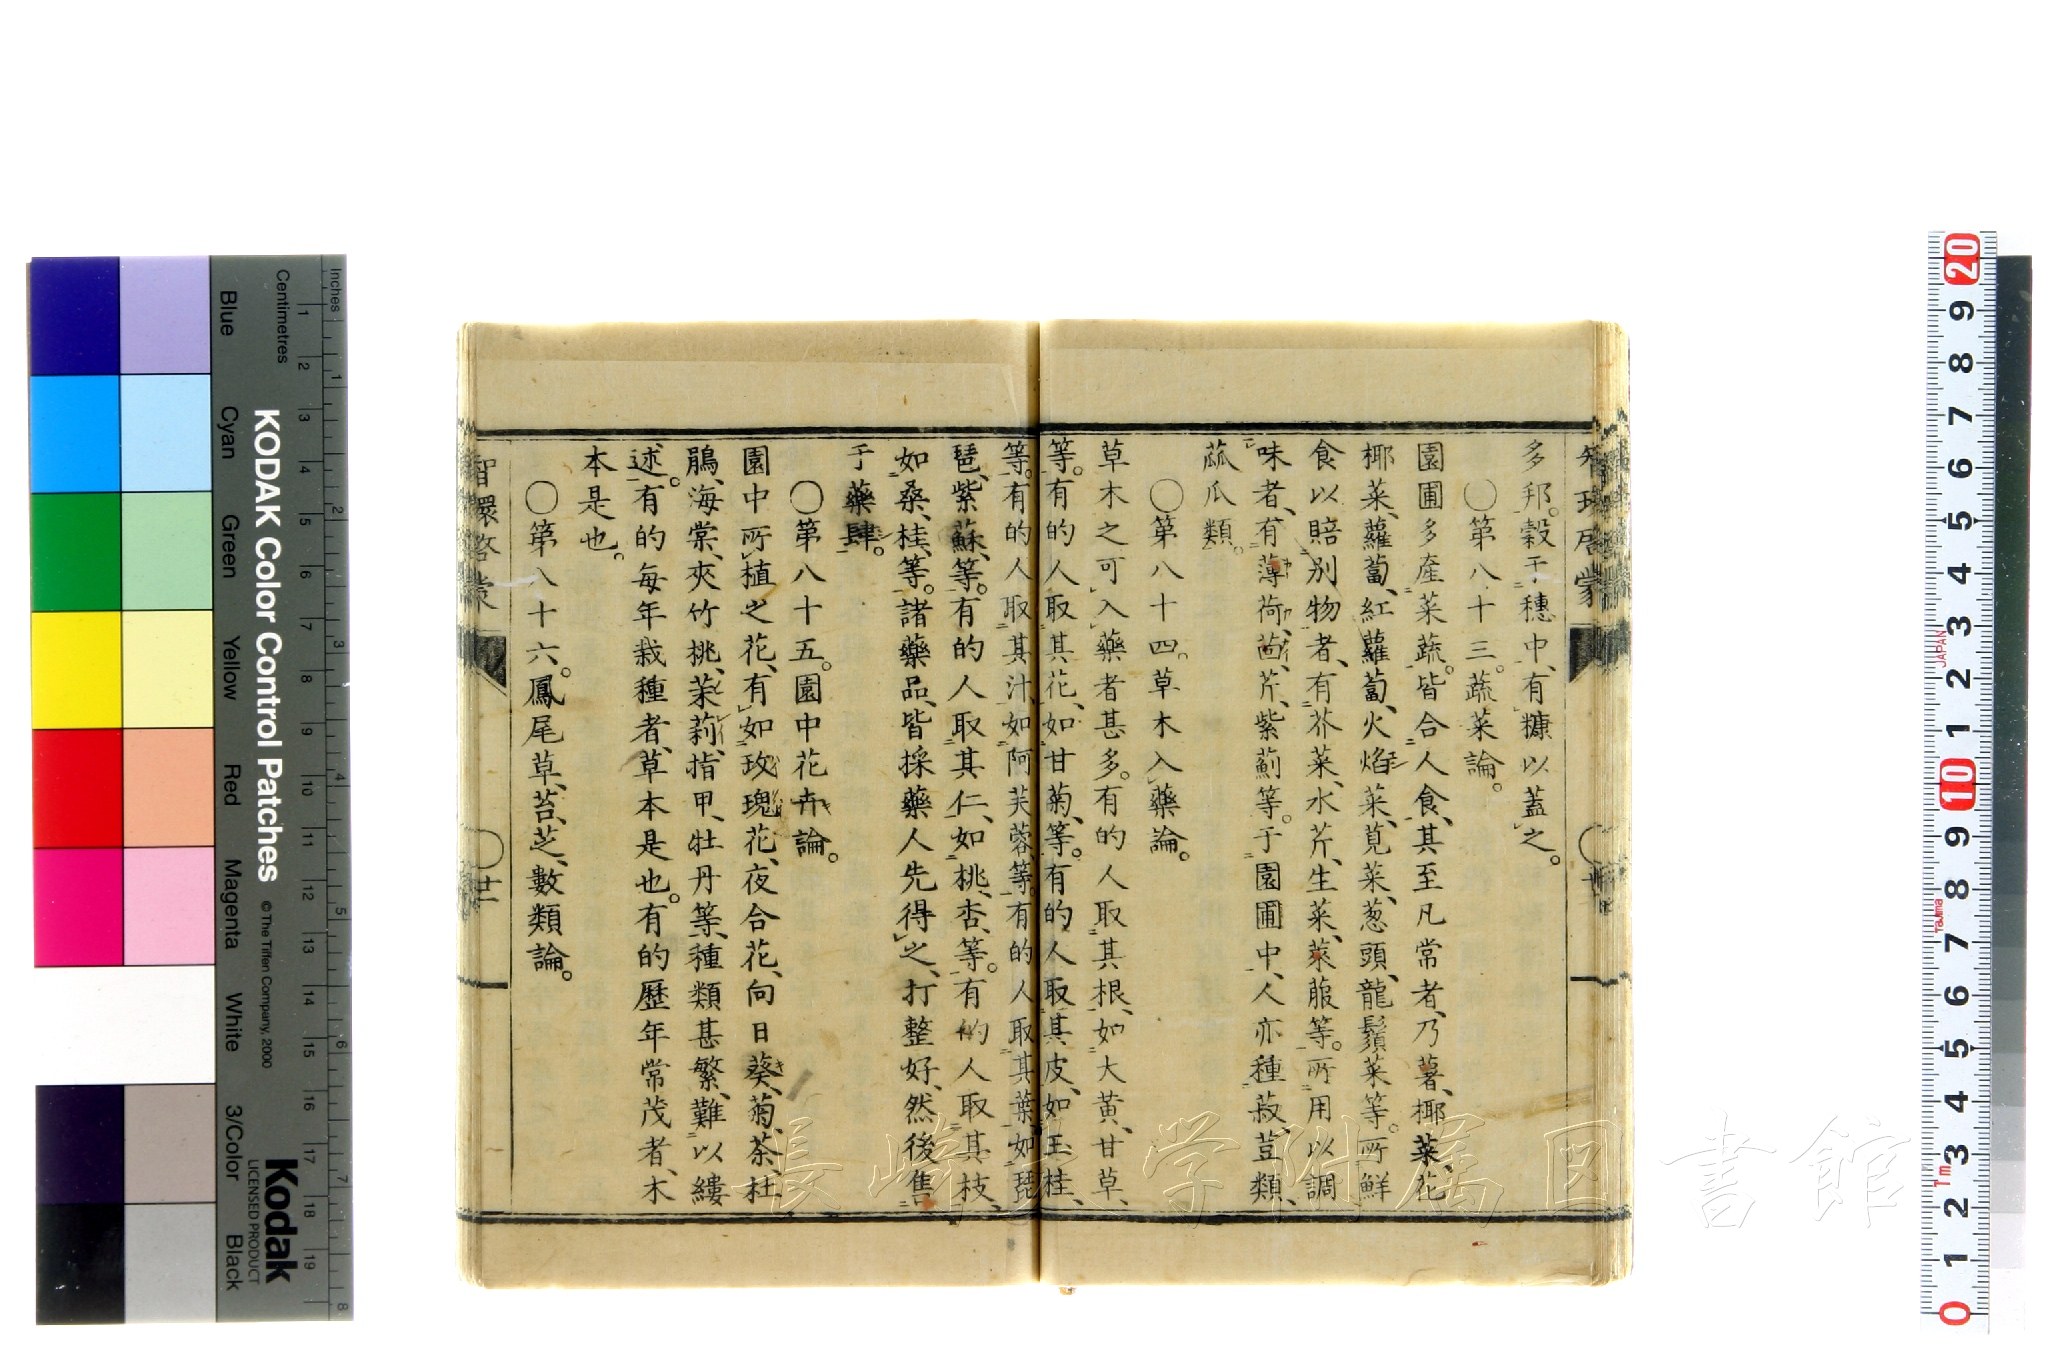 多邦。穀于穗中、有糠以蓋之。
〇第八十三。蔬菜論。
園圃多產菜蔬。皆合人食、其至凡常者、乃薯、椰菜、花
椰菜、蘿蔔、紅蘿蔔、火焰菜、莧菜、葱頭、龍鬚菜等。所鮮
食以賠别物者、有芥菜、水芹、生菜、萊菔等。所用以調
味者、有薄荷、茴、芹、紫蘇等。于園圃中、人亦種菽、荳類、
蓏瓜類。
〇第八十四。草木入藥論。
草木之可入藥者甚多。有的人取其根、如大黃、甘草、
等。有的人取其花、如甘菊、等。有的人取其皮、如玉桂、
等。有的人取其汁、如阿芙蓉、等。有的人取其葉、如琵
琶、紫蘇、等。有的人取其仁、如桃、杏、等。有的人取其枝、
如桑、桂、等。諸藥品、皆採藥人先得之、打整好、然後售
于藥肆。
〇第八十五。園中花卉論。
園中所植之花、有如玫瑰花、夜合花、向日葵、菊、茶、杜
鵑、海棠、夾竹桃、茉莉、指甲、牡丹等、種類甚繁、難以縷
述。有的每年栽種者、草本是也。有的歷年常茂者、木
本是也。
〇第八十六。鳳尾草、苔、芝、數類論。
智環啓蒙
廿
Inches
Centimetres
Blue
Cyan
Green
Yellow
Red
Magenta
White
3/Color
Black
KODAK Color Control Patches
© The Tiffen Company, 2000
Kodak
LICENSED PRODUCT
1 2 3 4 5 6 7 8 9 10 11 12 13 14 15 16 17 18 19
1 2 3 4 5 6 7 8
20 9 8 7 6 5 4 3 2 1 10 9 8 7 6 5 4 3 2 1 0
JAPAN
Tajima
1m
長崎大学附属図書館